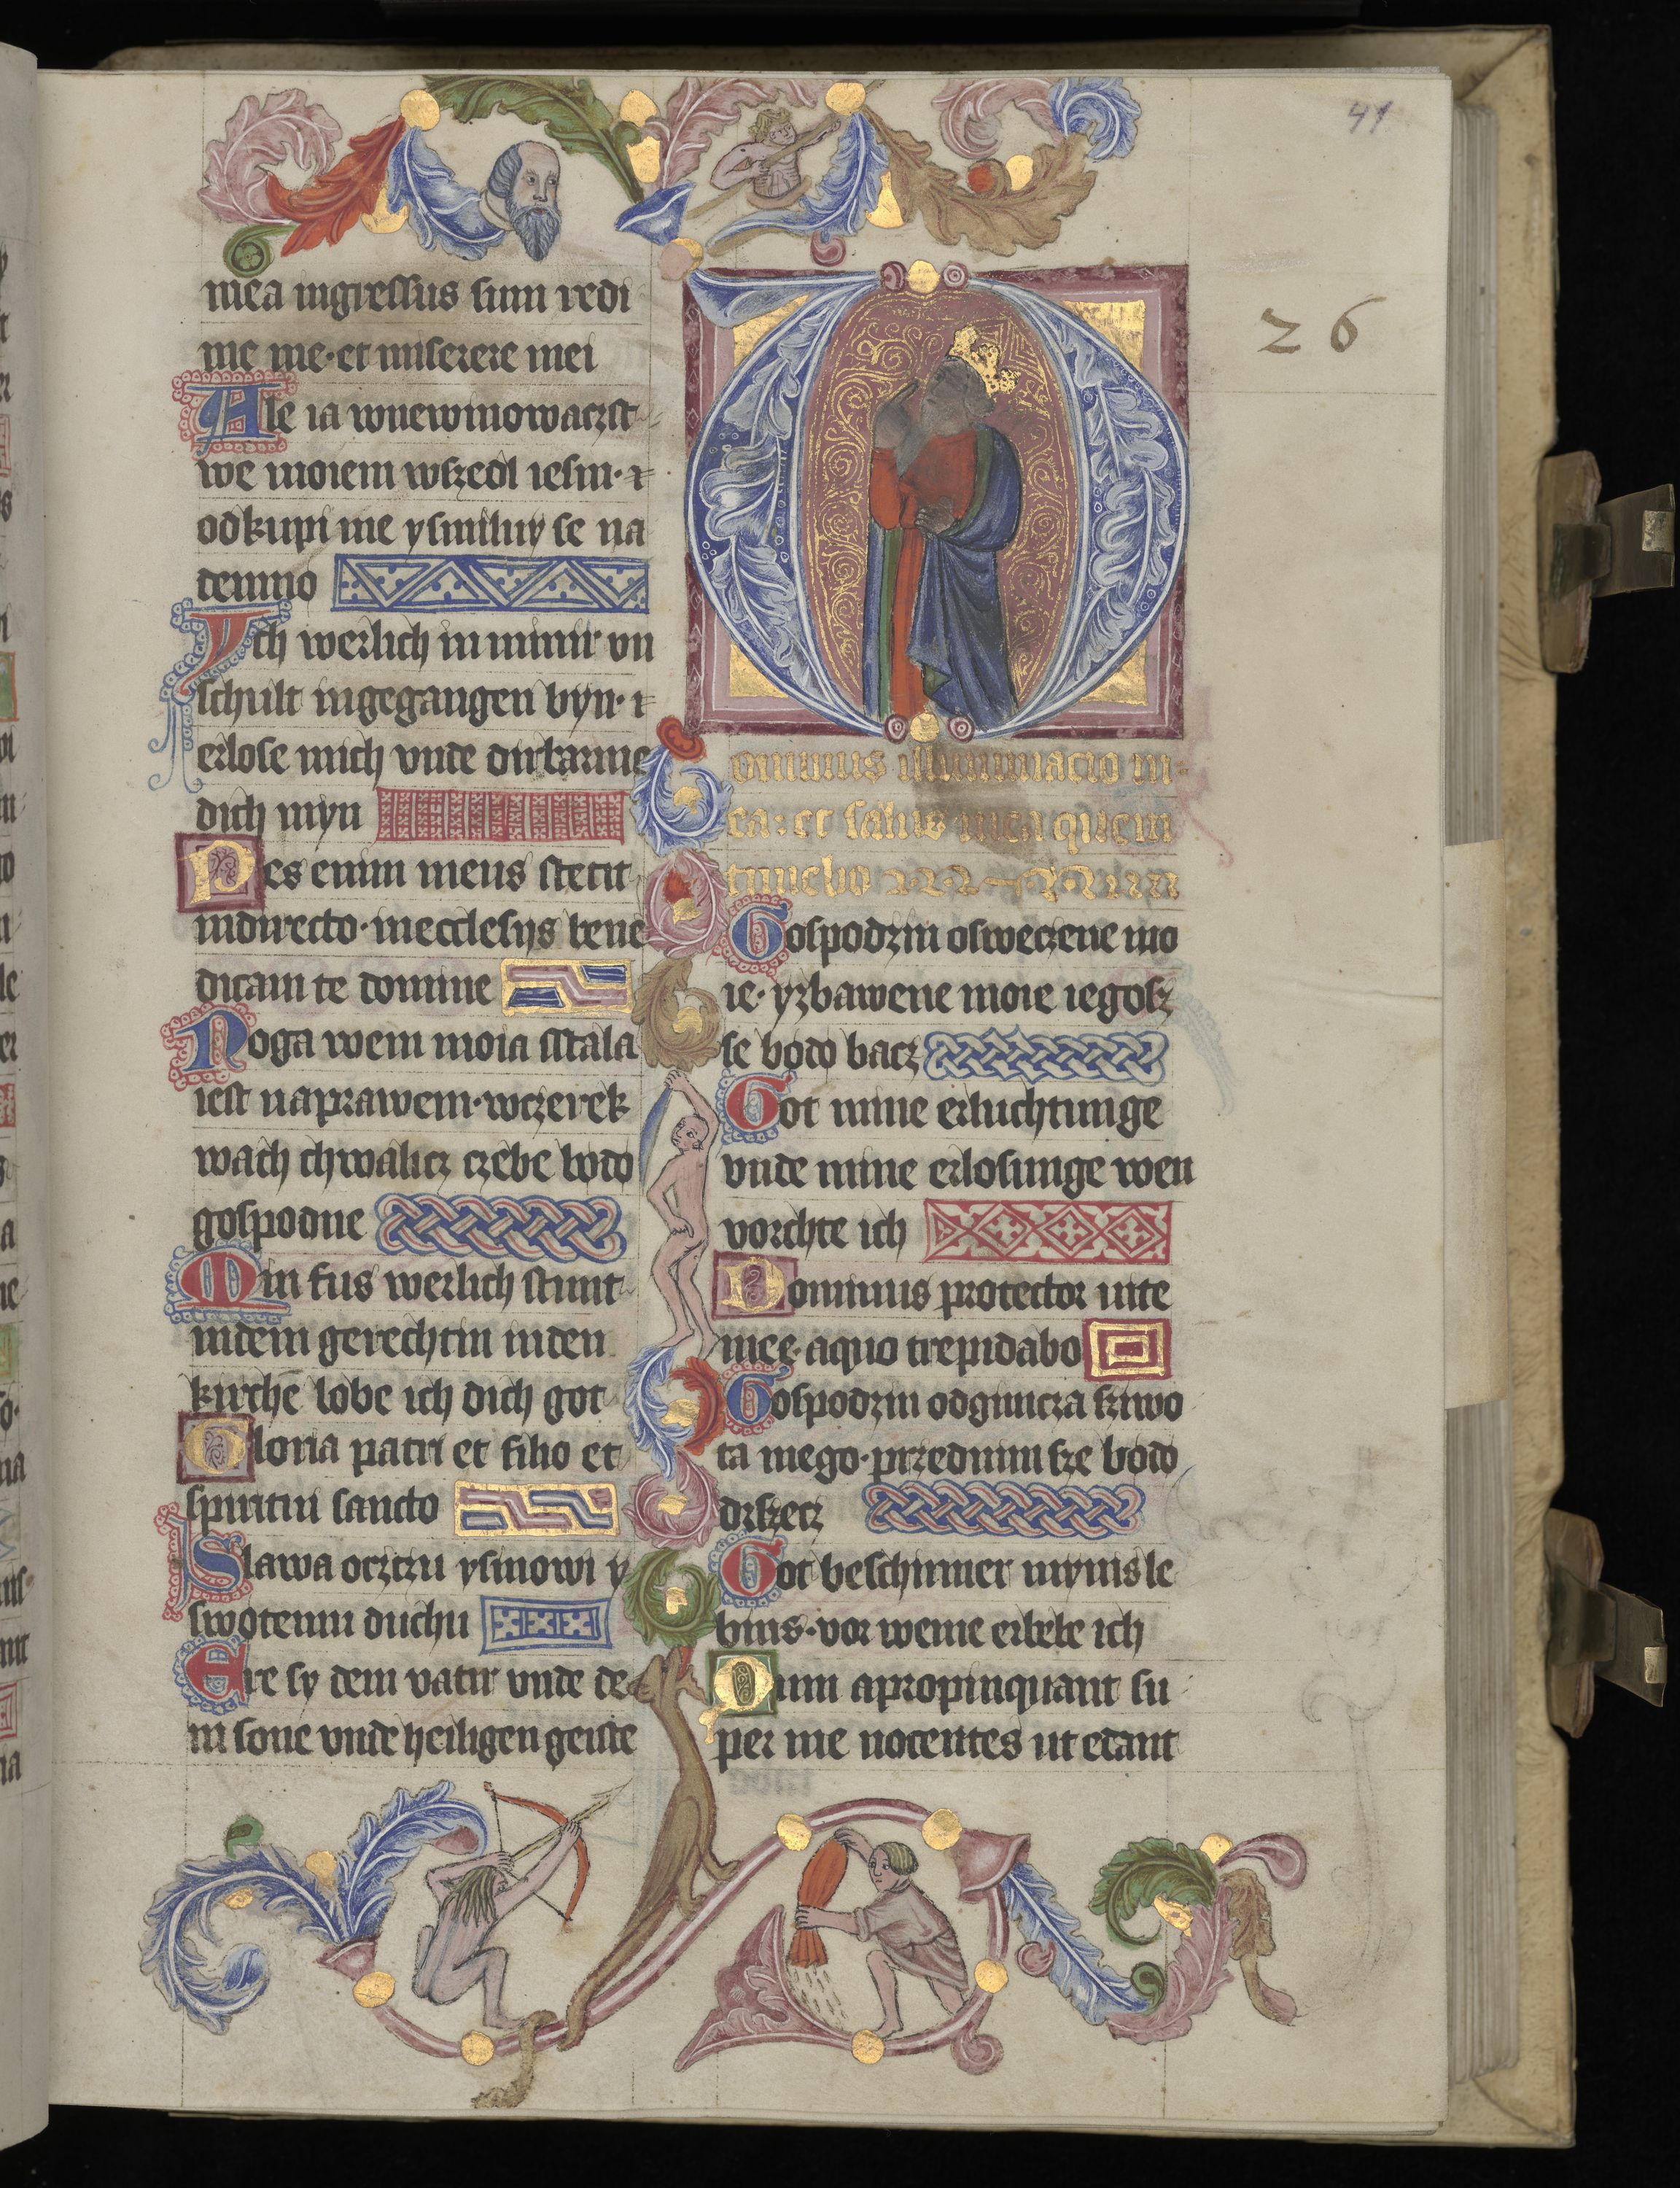 41
26
mea ingressus sum redi
me me·et miserere mei
Ale ia wnewinowaczst
we moiem wszedl iesm·⁊
odkupi me ysmiluy se na
demno
Ich werlich in minir vn
schult ingegangen byn·⁊
erlose mich vnde dirbarme
dich myn
Pes enim meus stetit
indirecto·inecclesijs bene
dicam te domine
Noga wem moia stala
iest naprawem·wczerek
wach chwalicz czebe bodo
gospodne
Min fus werlich stunt
indem gerechtin inden
kirche lobe ich dich got
Gloria patri et filio et
spiritui sancto
Slawa oczczu ysinowi y
swotemu duchu
Ere sy dem vatir vnde de
m sone vnde heiligen geiste
Dominus illuminacio m
ea: et salus mea quem
timebo
Gospodzin osweczene mo
ie· yzbawene moie iegosz
se bodo bacz
Got mine erluchtunge
vnde mine erlosunge wen
vorchte ich
Dominus protector uite
mee·aquo trepidabo
Gospodzin odgimcza sziwo
ta mego·przednimsze bodo
drszecz
Got beschirmer mynis le
bins·vor weme erbebe ich
Dum apropinquant su
per me nocentes ut edant